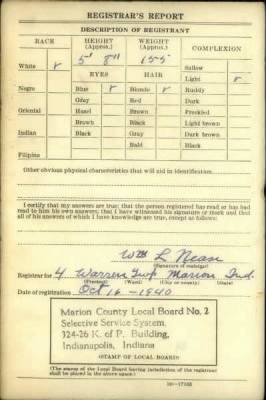 REGISTRAR'S REPORT
DESCRIPTION OF REGISTRANT
RACE HEIGHT (Approx.) WEIGHT (Approx.) COMPLEXION
5' 8" 155 Sallow
White ✓ EYES HAIR Light ✓
Negro Blue ✓ Blonde ✓ Ruddy
Gray Red Dark
Oriental Hazel Brown Freckled
Brown Black Light brown
Indian Black Gray Dark brown
Bald Black
Filipino
Other obvious physical characteristics that will aid in identification
I certify that my answers are true; that the person registered has read or has had
read to him his own answers; that I have witnessed his signature or mark and that
all of his answers of which I have knowledge are true, except as follows:
Wm L Nean
(Signature of registrar)
Registrar for 4 Warren Twp Marion Ind.
(Precinct) (Ward) (City or county) (State)
Date of registration Oct 16 - 1940
Marion County Local Board No. 2
Selective Service System
324-26 K. of P. Building,
Indianapolis, Indiana
(STAMP OF LOCAL BOARD)
(The stamp of the Local Board having jurisdiction of the registrant
shall be placed in the above space.)